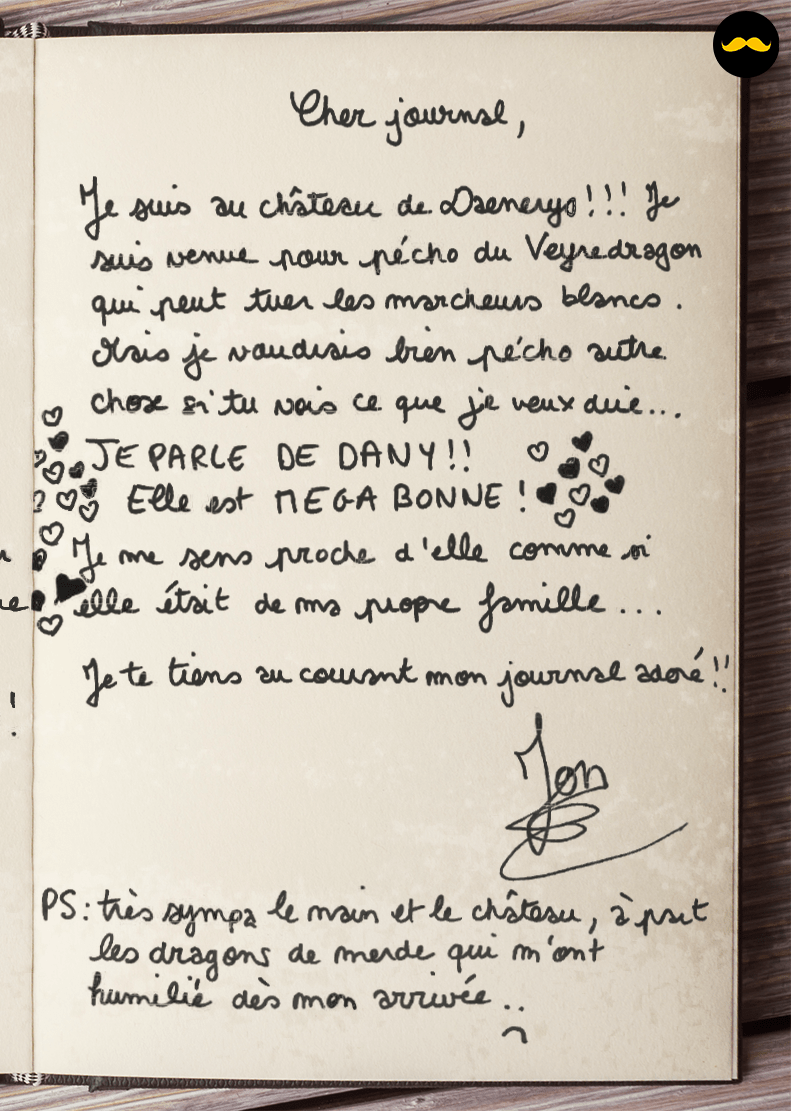 Cher journal,
Je suis au château de Daenerys!!! Je
suis venue pour pécho du Veyredragon
qui peut tuer les marcheurs blancs.
Mais je voudrais bien pécho autre
chose si tu vois ce que je veux dire...
JE PARLE DE DANY!!
Elle est MEGA BONNE!
Je me sens proche d'elle comme si
elle était de ma propre famille...
Je te tiens au courant mon journal adoré!!
Jon
PS: très sympa le main et le château, à part
les dragons de merde qui m'ont
humilié dès mon arrivée..